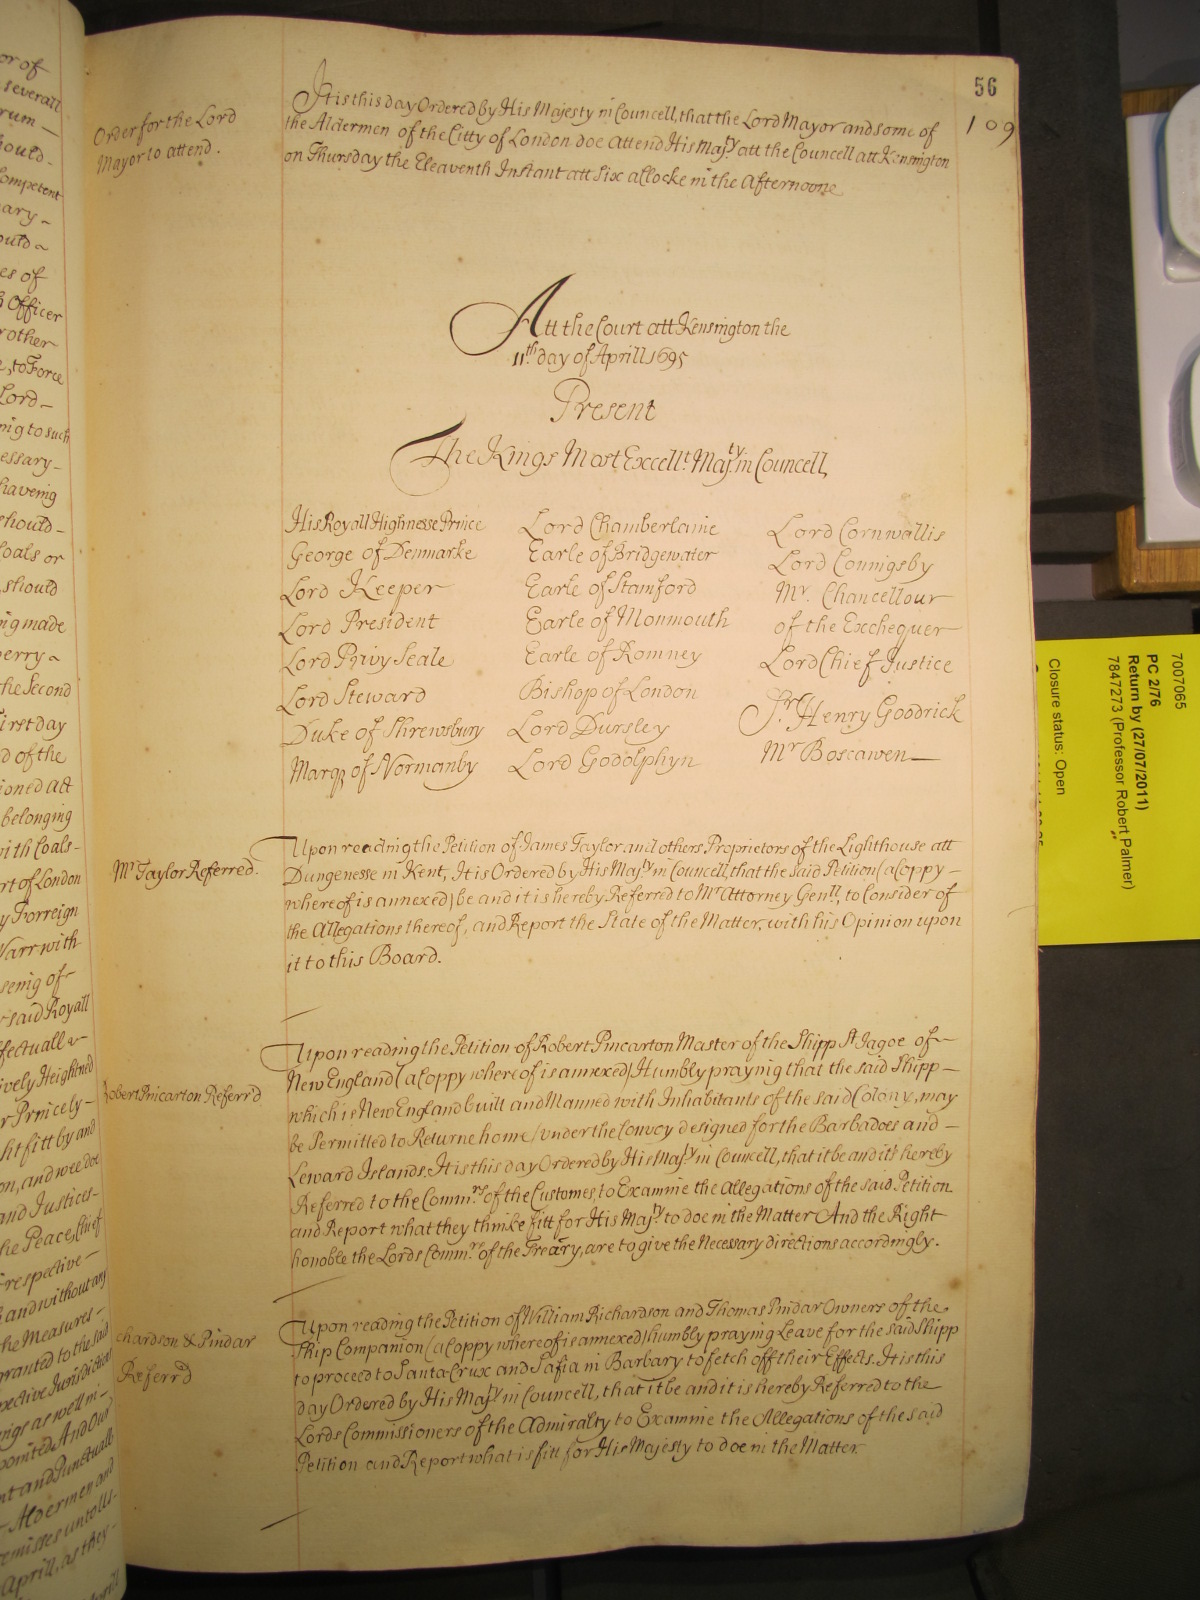 56
109
Order for the Lord
Mayor to attend.
It is this day Ordered by His Majesty in Councell, that the Lord Mayor and some of
the Aldermen of the Citty of London doe attend His Maj.ty att the Councell att Kensington
on Thursday the Eleaventh Instant att Six a Clocke in the Afternoone
Att the Court att Kensington the
11th day of Aprill 1695
Present
The Kings Most Excell.t Maj.ty in Councell
His Royall Highnesse Prince
George of Denmarke
Lord Keeper
Lord President
Lord Privy Seale
Lord Steward
Duke of Shrewsbury
Marq. of Normanby
Lord Chamberlaine
Earle of Bridgewater
Earle of Stamford
Earle of Monmouth
Earle of Romney
Bishop of London
Lord Dursley
Lord Godolphyn
Lord Cornwallis
Lord Conningsby
Mr. Chancellour
of the Exchequer
Lord Chief Justice
Sr. Henry Goodrick
Mr Boscawen
Mr Taylor Referred.
Upon reading the Petition of James Taylor and others Proprietors of the Lighthouse att
Dungenesse in Kent, It is Ordered by His Maj.ty in Councell, that the said Petition (a Coppy
whereof is annexed) be and it is hereby Referred to Mr Attorney Gen.ll, to Consider of
the Allegations thereof, and Report the State of the Matter, with his Opinion upon
it to this Board.
Robert Pincarton Referr'd
Upon reading the Petition of Robert Pincarton Master of the Shipp St Jagoe of
New England (a Coppy whereof is annexed) Humbly praying that the said Shipp
which is New England built and Manned with Inhabitants of the said Colony, may
be Permitted to Returne home under the Convoy designed for the Barbadoes and
Leward Islands. It is this day Ordered by His Maj.ty in Councell, that it be and it is hereby
Referred to the Comm.rs of the Customes, to Examine the Allegations of the said Petition
and Report what they thinke fitt for His Maj.ty to doe in the Matter And the Right
honoble the Lords Comm.rs of the Treāry, are to give the Necessary directions accordingly.
chardson & Pindar
Referr'd
Upon reading the Petition of William Richardson and Thomas Pindar Owners of the
Ship Companion (a Coppy whereof is annexed) humbly praying Leave for the said Shipp
to proceed to Santa Crux and Safia in Barbary to fetch off their Effects. It is this
day Ordered by His Maj.ty in Councell, that it be and it is hereby Referred to the
Lords Commissioners of the Admiralty to Examine the Allegations of the said
Petition and Report what is fitt for His Majesty to doe in the Matter.
7007065
PC 2/76
Return by (27/07/2011)
7847273 (Professor Robert Palmer)
Closure status: Open
or of
severall
rum
hould
Competent
ary
ould
es of
Officer
other
, to Force
Lord
ing to such
essary
having
should
Coals or
should
ing made
perry
the Second
First day
d of the
ioned att
belonging
with Coals
rt of London
y Forreign
Warr with
said Royall
ffectuall
ively Heightned
r Princely
ht fitt by and
on, and wee doe
and Justices
he Peace, Chief
respective
and without any
the Measures
granted to the said
pective Jurisdiction
ings as well in
pointed And Our
nt and Punctuall
Aldermen and
remisses untolls
Aprill, as they